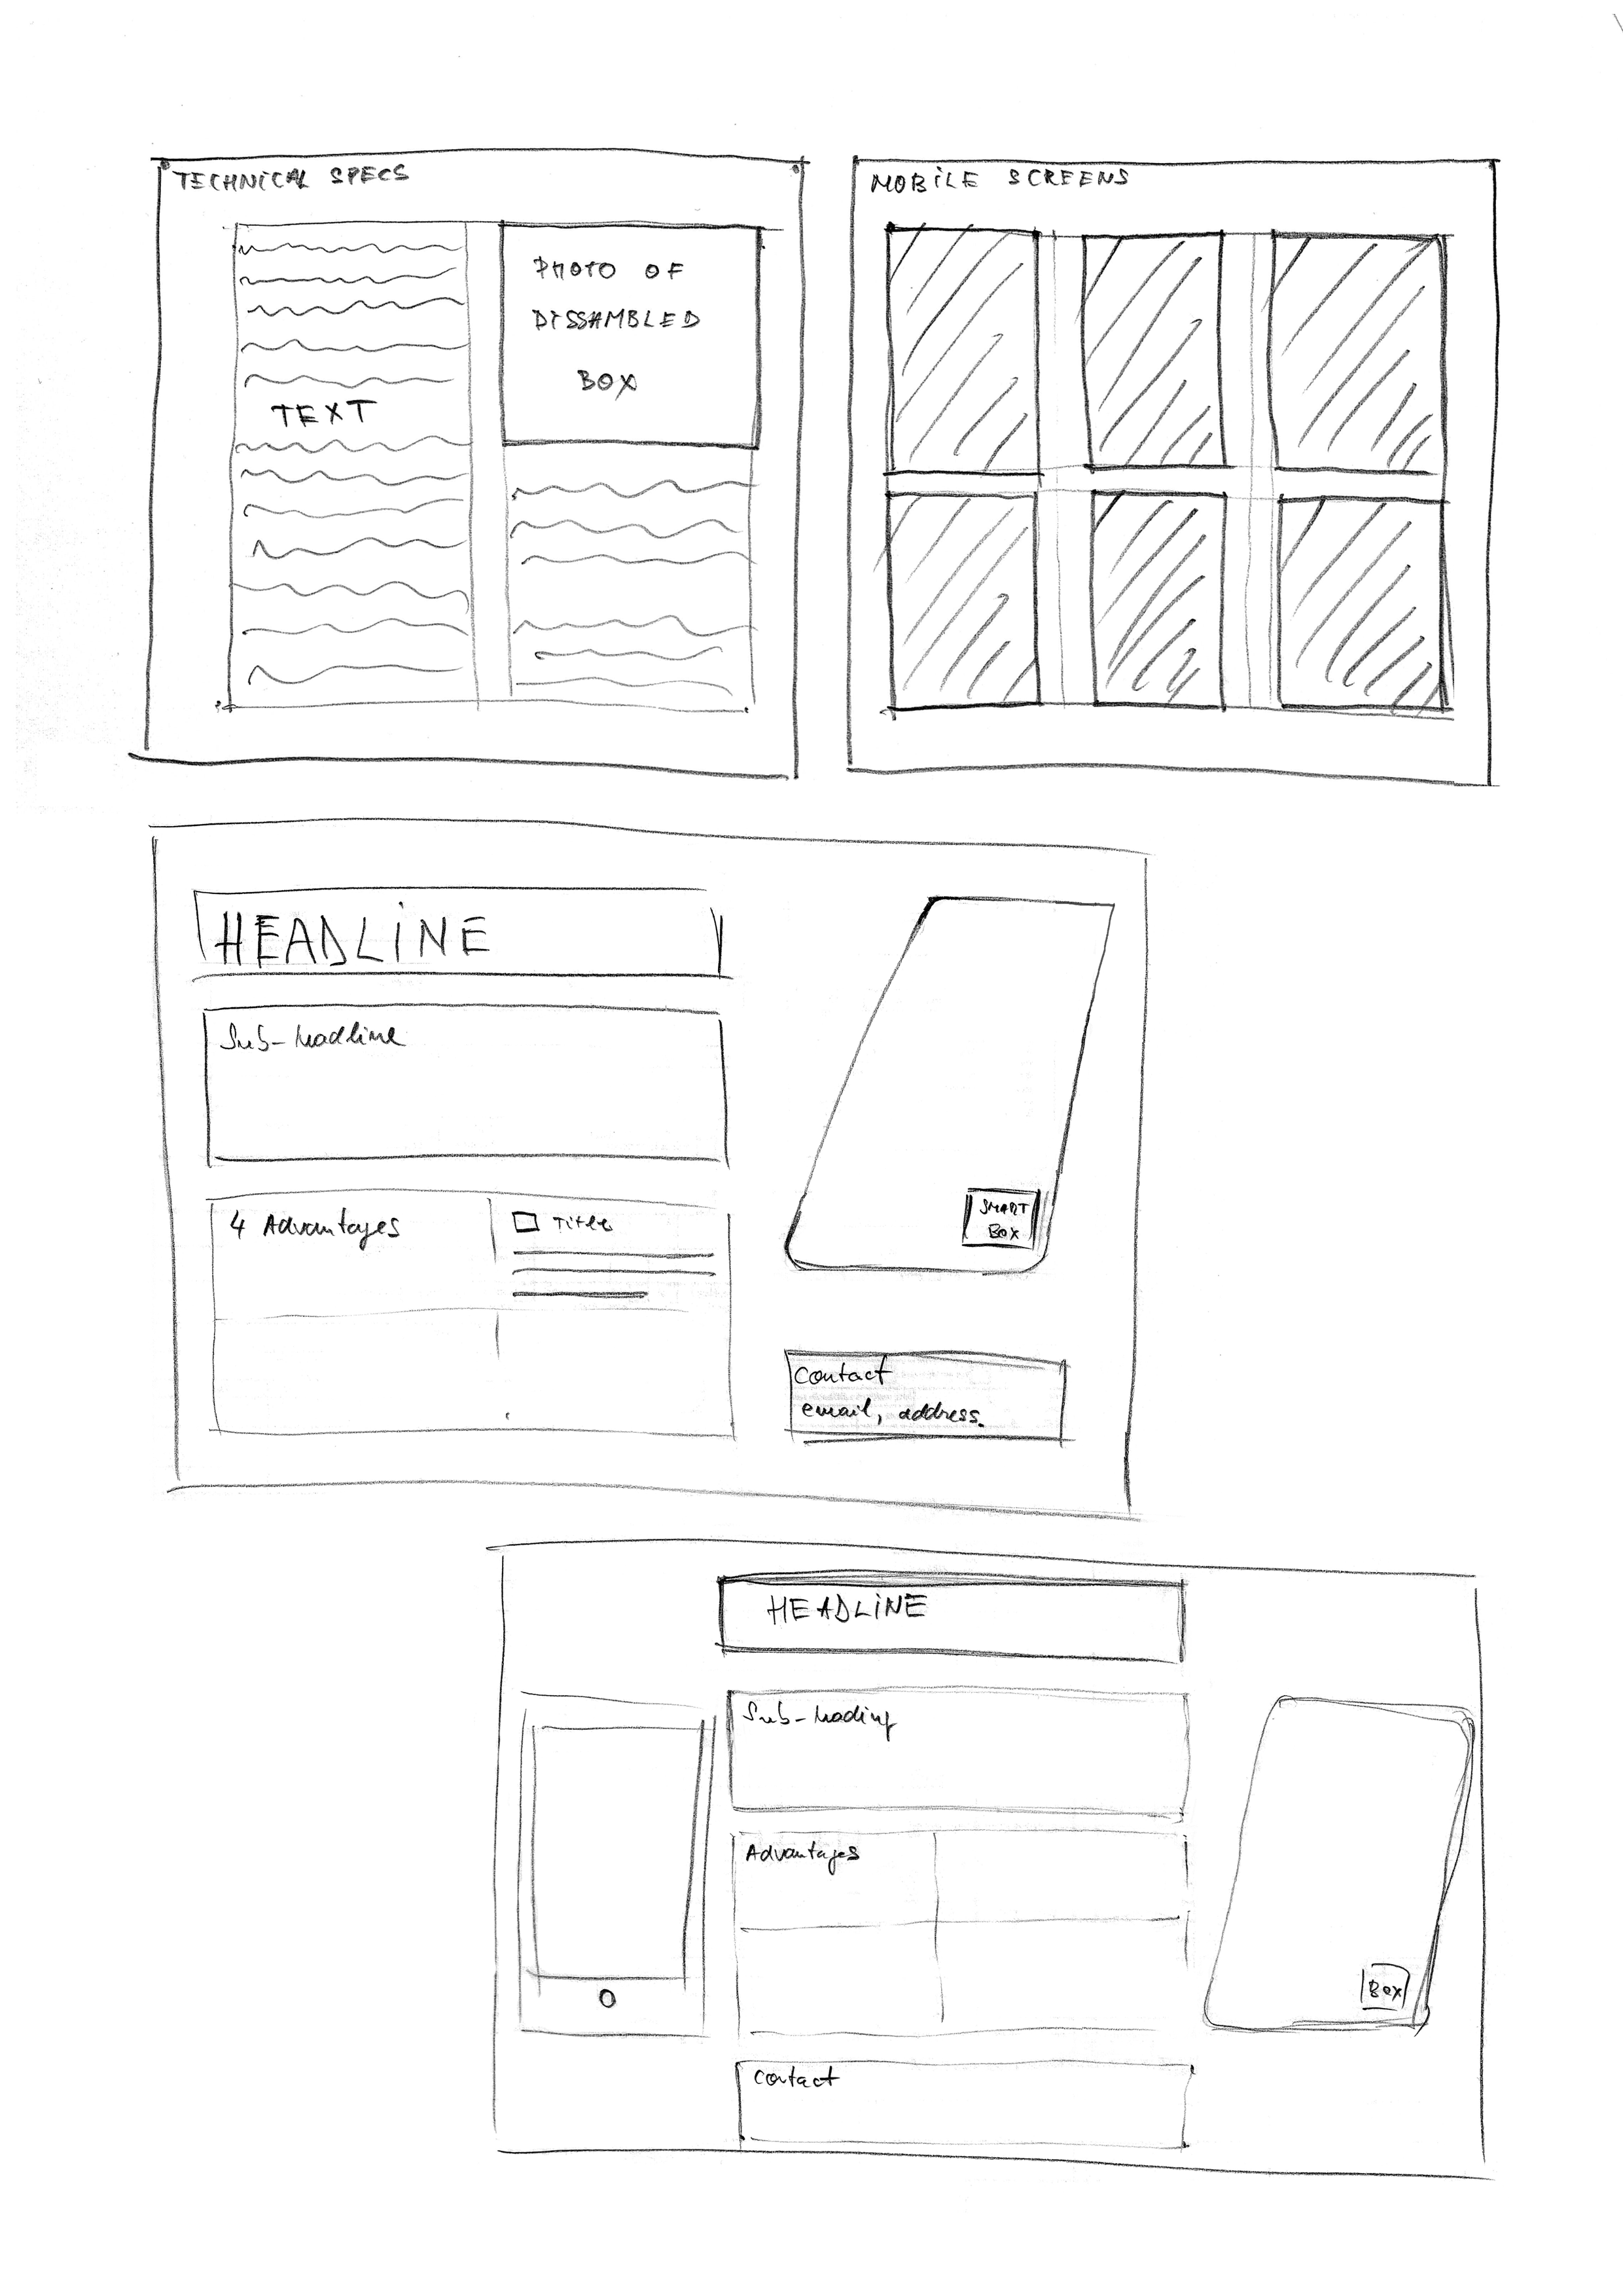 TECHNICAL SPECS
PHOTO OF
DISSAMBLED
BOX
TEXT
MOBILE SCREENS
HEADLINE
Sub-headline
4 Advantages
Title
SMART
BOX
Contact
email, address.
HEADLINE
Sub-heading
Advantages
Box
Contact